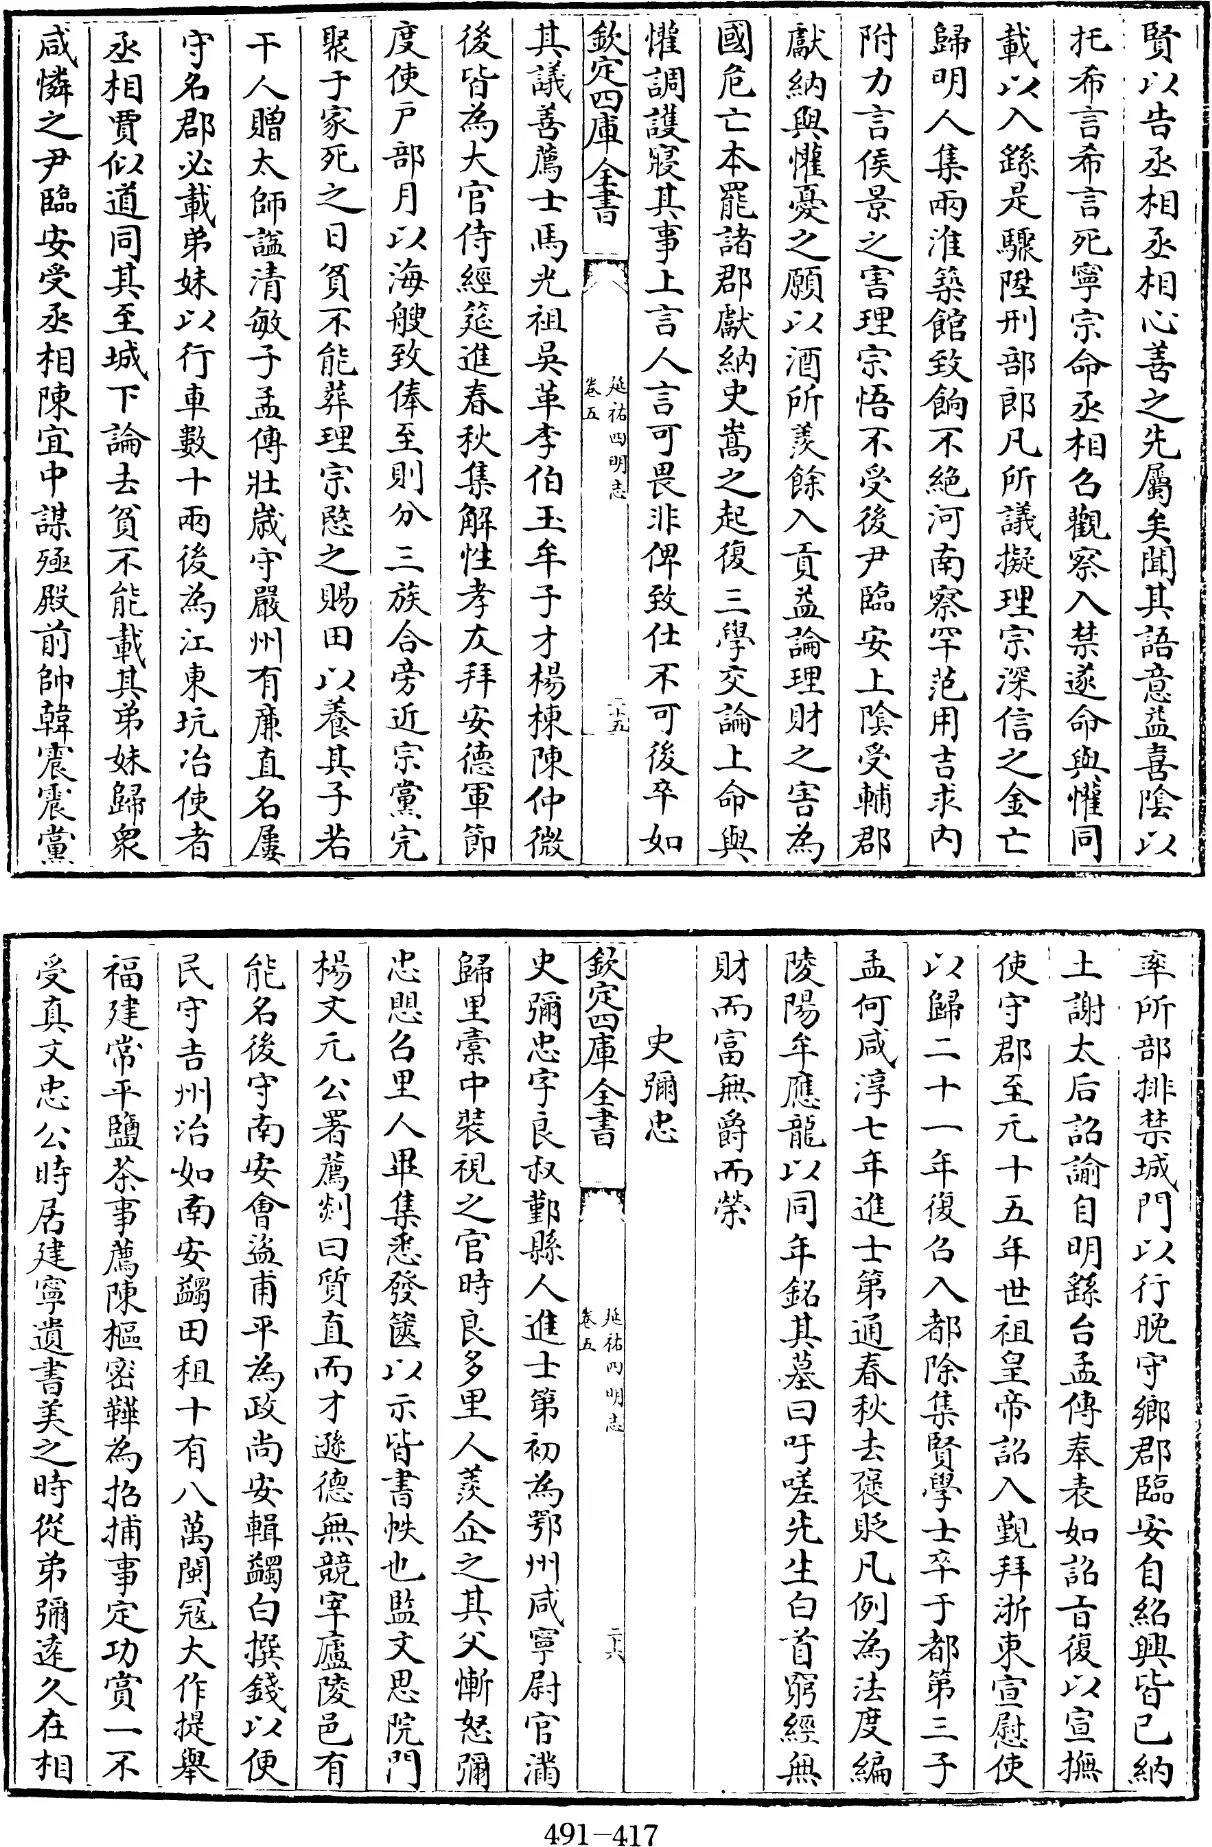 賢以告丞相丞相心善之先屬矣聞其語意益喜陰以
托希言希言死寧宗命丞相召觀察入禁遂命與懽同
載以入繇是驟陞刑部郎凡所議擬理宗深信之金亡
歸明人集兩淮築館致餉不絶河南察罕范用吉求內
附力言侯景之害理宗悟不受後尹臨安上陰受輔郡
獻納與懽憂之願以酒所羨餘入貢益論理財之害為
國危亡本罷諸郡獻納史嵩之起復三學交論上命與
懽調護寢其事上言人言可畏非俾致仕不可後卒如
欽定四庫全書
延祐四明志
卷五
二十五
其議善薦士馬光祖吳革李伯玉牟子才楊棟陳仲微
後皆為大官侍經筵進春秋集解性孝友拜安德軍節
度使戶部月以海艘致俸至則分三族合旁近宗黨完
聚于家死之日貧不能葬理宗愍之賜田以養其子若
干人贈太師諡清敏子孟傳壯歲守嚴州有廉直名屢
守名郡必載弟妹以行車數十兩後為江東坑冶使者
丞相賈似道同其至城下論去貧不能載其弟妹歸衆
咸憐之尹臨安受丞相陳宜中謀殛殿前帥韓震震黨
率所部排禁城門以行晚守鄉郡臨安自紹興皆已納
土謝太后詔諭自明繇台孟傳奉表如詔旨復以宣撫
使守郡至元十五年世祖皇帝詔入覲拜浙東宣慰使
以歸二十一年復召入都除集賢學士卒于都第三子
孟何咸淳七年進士第通春秋去褒貶凡例為法度編
陵陽牟應龍以同年銘其墓曰吁嗟先生白首窮經無
財而富無爵而榮
史彌忠
欽定四庫全書
延祐四明志
卷五
二十六
史彌忠字良叔鄞縣人進士第初為鄂州咸寧尉官滿
歸里橐中裝視之官時良多里人羨企之其父慚怒彌
忠愳召里人畢集悉發篋以示皆書帙也監文思院門
楊文元公署薦剡曰質直而才遜德無競宰廬陵邑有
能名後守南安會盜甫平為政尚安輯蠲白撰錢以便
民守吉州治如南安蠲田租十有八萬閩冦大作提舉
福建常平鹽茶事薦陳樞密韡為招捕事定功賞一不
受真文忠公時居建寧遺書美之時從弟彌遠久在相
491-417